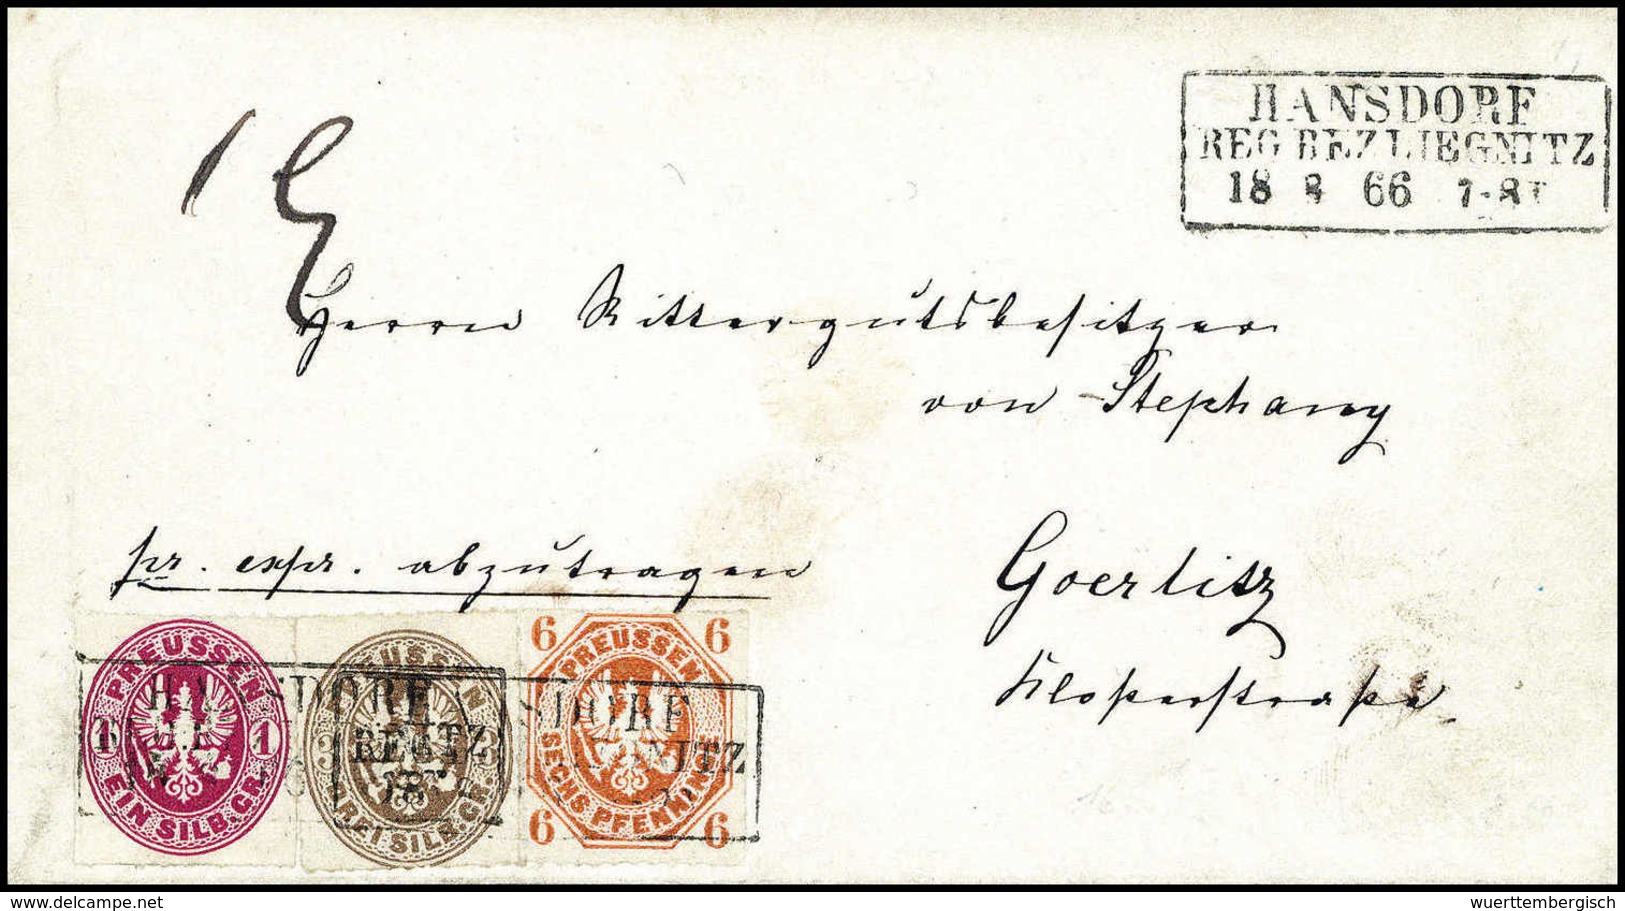 HANSDORF
REG BEZ LIEGNITZ
18 8 66 7-8
Herrn Rittergutsbesitzer
von Stephany
pr. expr. abzutragen
Goerlitz
Klosterstraße
PREUSSEN
1 1
EIN SILB.GR.
PREUSSEN
3 3
DREI SILB.GR.
6 6
PREUSSEN
SECHS PFENNINGE
6 6
HANSDORF
wuerttembergisch
delcampe.net